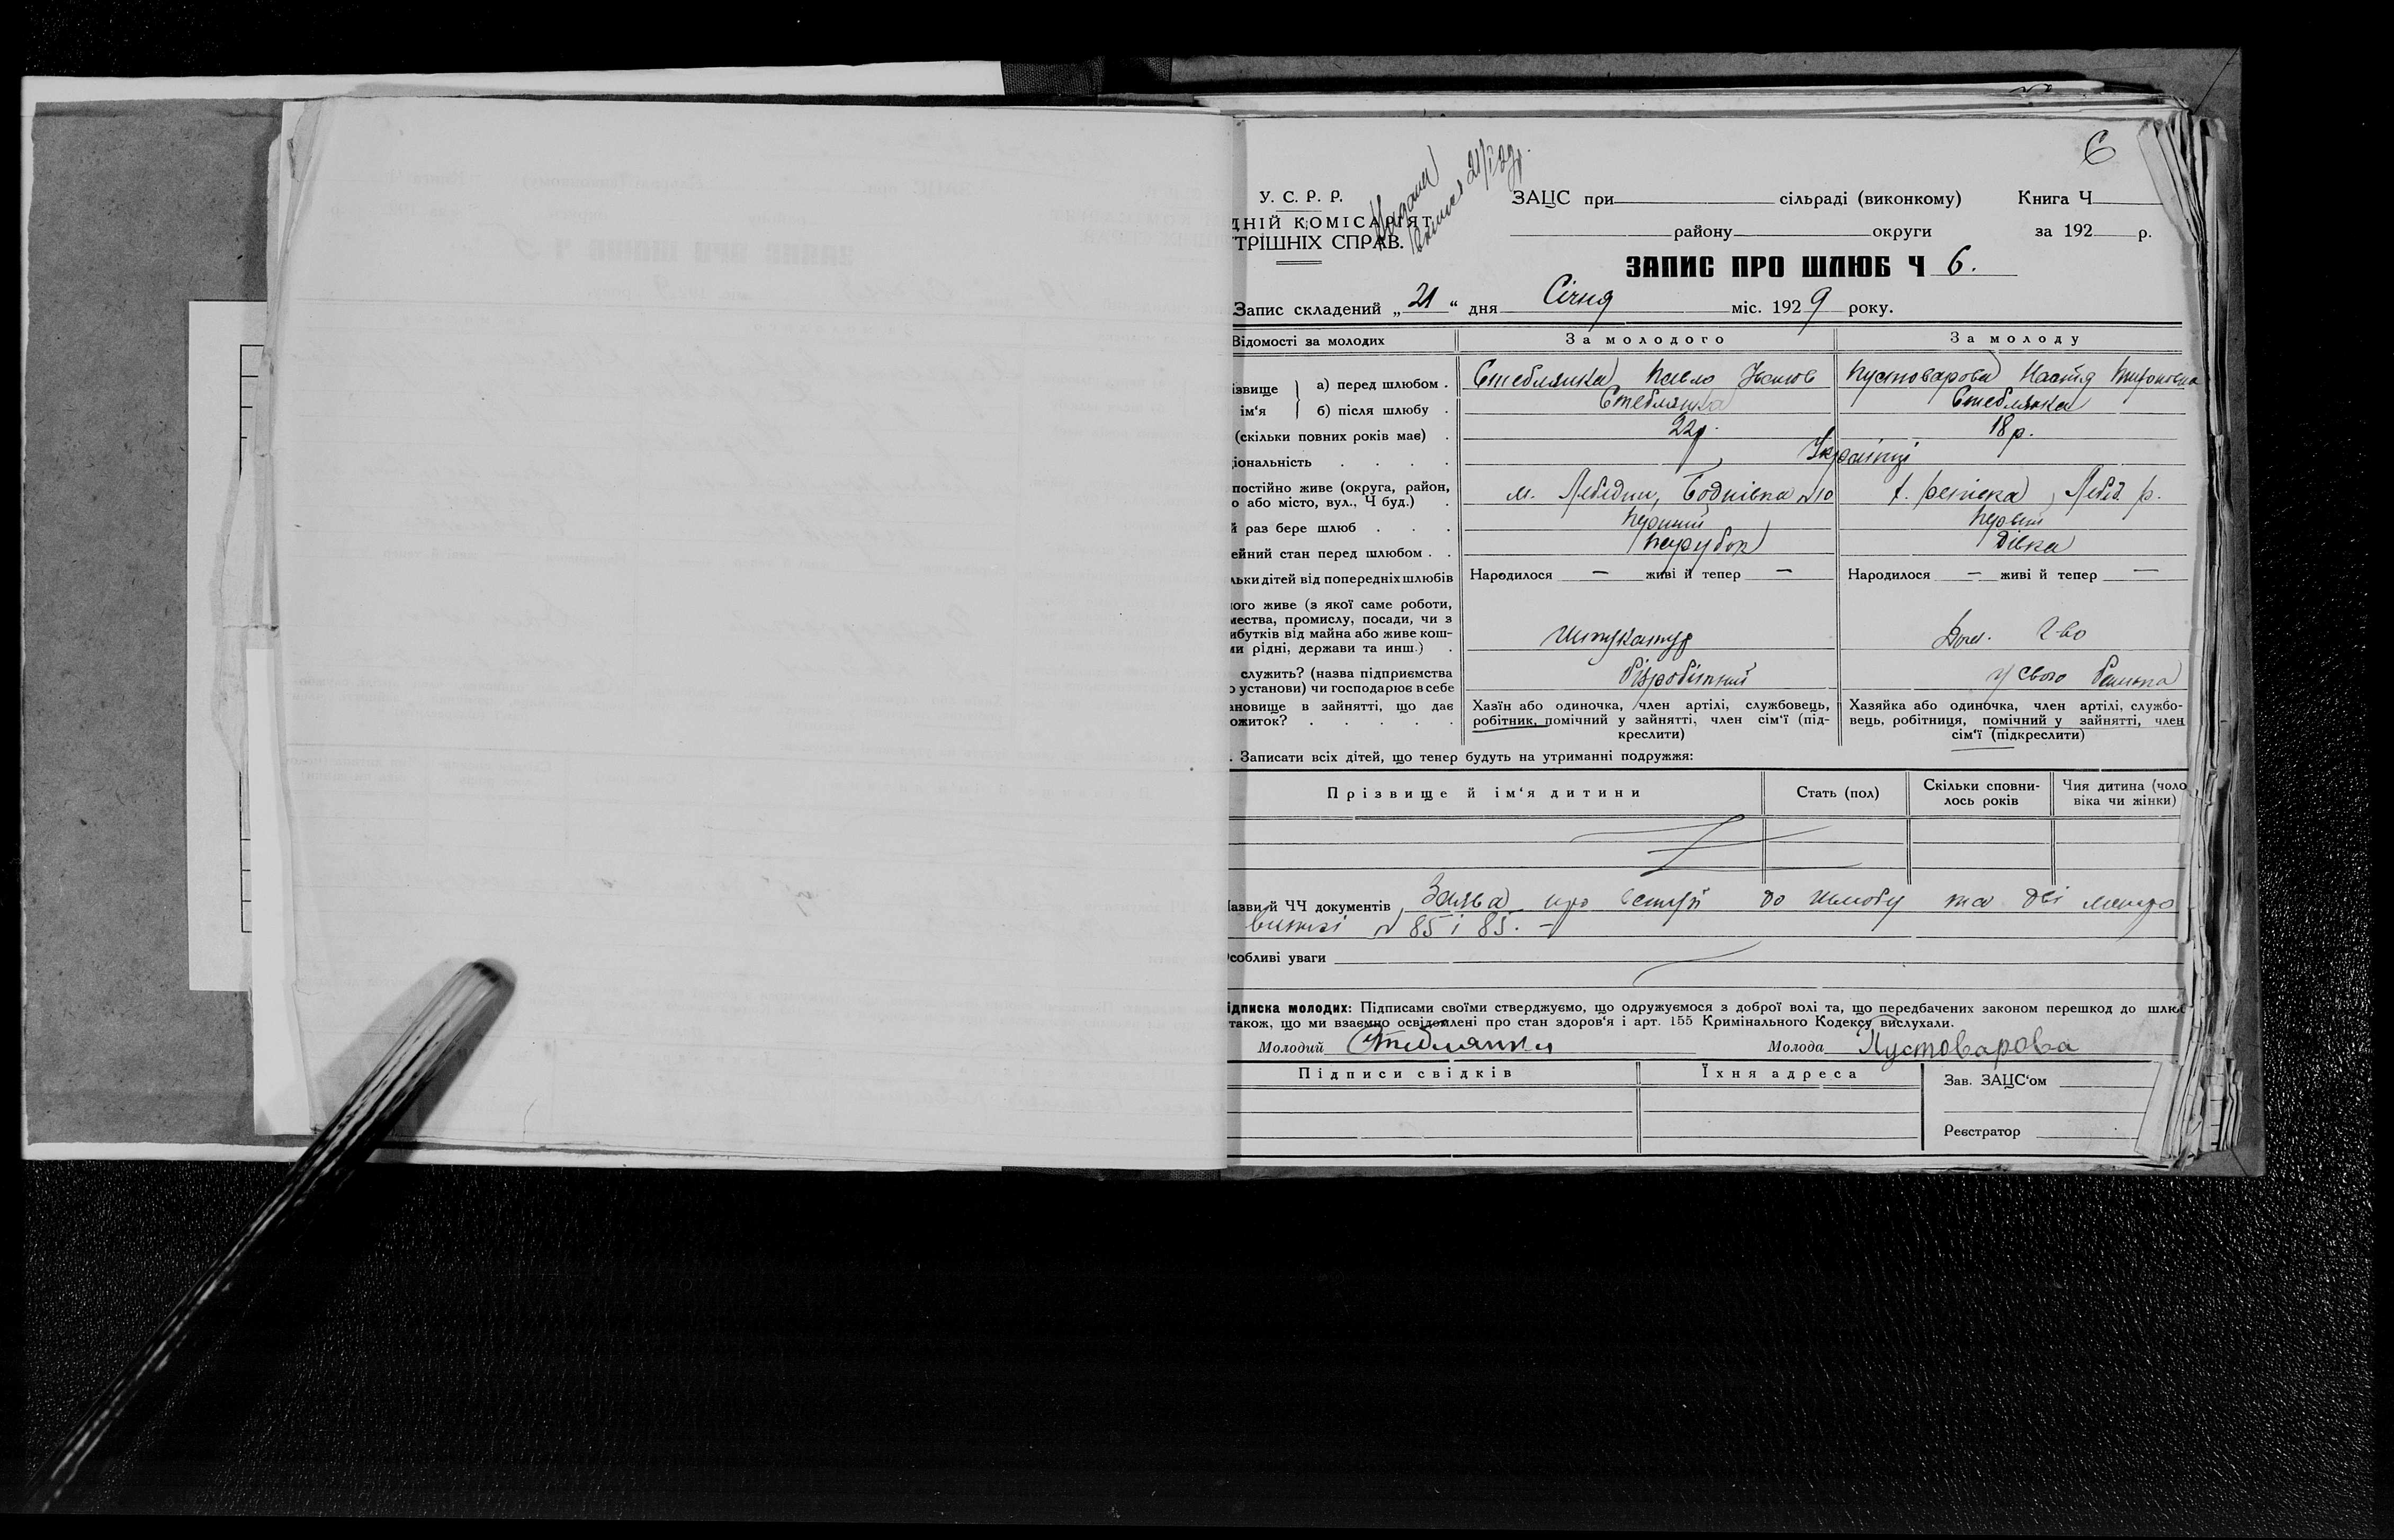 6
У. С. Р. Р.
ДНІЙ КОМІСАРІЯТ
ТРІШНІХ СПРАВ.
21/I 29р.
ЗАЦС при сільраді (виконкому) Книга Ч
району округи за 192 р.
ЗАПИС ПРО ШЛЮБ Ч 6.
Запис складений „21“ дня Січня міс. 1929 року.
Відомості за молодих За молодого За молоду
ізвище а) перед шлюбом . Стеблянка Павло Пустоварова Настя
ім‘я б) після шлюбу . Стеблянка Стеблянка
(скільки повних років має) . 22р. 18р.
іональність . . . . Українці
постійно живе (округа, район,
о або місто, вул., Ч буд.) . м. Лебедин, №10 Лебед. р.
й раз бере шлюб . . . Перший Первий
ейний стан перед шлюбом . . Парубок Дівка
льки дітей від попередніх шлюбів Народилося — живі й тепер — Народилося — живі й тепер —
ого живе (з якої саме роботи,
мества, промислу, посади, чи з
ибутків від майна або живе кош-
ми рідні, держави та инш.) . Штукатур Дом. г-во
служить? (назва підприємства
о установи) чи господарює в себе безробітний у свого батька
ановище в зайнятті, що дає
ожиток? . . . . .
Хазїн або одиночка, член артілі, службовець,
робітник, помічний у зайнятті, член сім‘ї (під-
креслити)
Хазяйка або одиночка, член артілі, службо-
вець, робітниця, помічний у зайнятті, член
сім‘ї (підкреслити)
. Записати всіх дітей, що тепер будуть на утриманні подружжя:
Прізвище й ім‘я дитини Стать (пол) Скільки сповни-
лось років Чия дитина (чоло
віка чи жінки)
азви й ЧЧ документів Заява про вступ до шлюбу та дві метро
виписі № 85 і 85. —
собливі уваги
ідписка молодих: Підписами своїми стверджуємо, що одружуємося з доброї волі та, що передбачених законом перешкод до шлю
також, що ми взаємно освідомлені про стан здоров‘я і арт. 155 Кримінального Кодексу вислухали.
Молодий Стеблянка Молода Пустоварова
Підписи свідків Їхня адреса Зав. ЗАЦС‘ом
Реєстратор